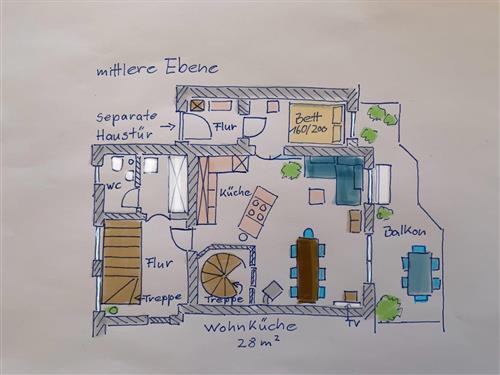 mittlere Ebene
separate
Haustür
Flur
Bett
160/200
WC
Küche
Balkon
Flur
Treppe
Treppe
TV
Wohnküche
28 m²